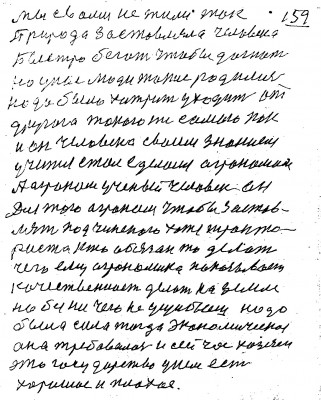 159
мы с вами не жили так
Природа заставляла человека
быстро бегат чтобы догнат
но умные люди такие родилис
надо было хитрит уходит от
друга такого же самого как
и он человека своим знанием
учится стал сделали агрономам
Агроном ученый человек он
для того агроном чтобы застав-
лят подчиненого тоже тракто-
риста кто обязан то делат
чего ему агрономика показывает
качественает делат на земли
но бы ни чего не
была сила тогда экономическая
она требовалас и сейчас хозяин
это государство у нем ест
хорошое и плохая.